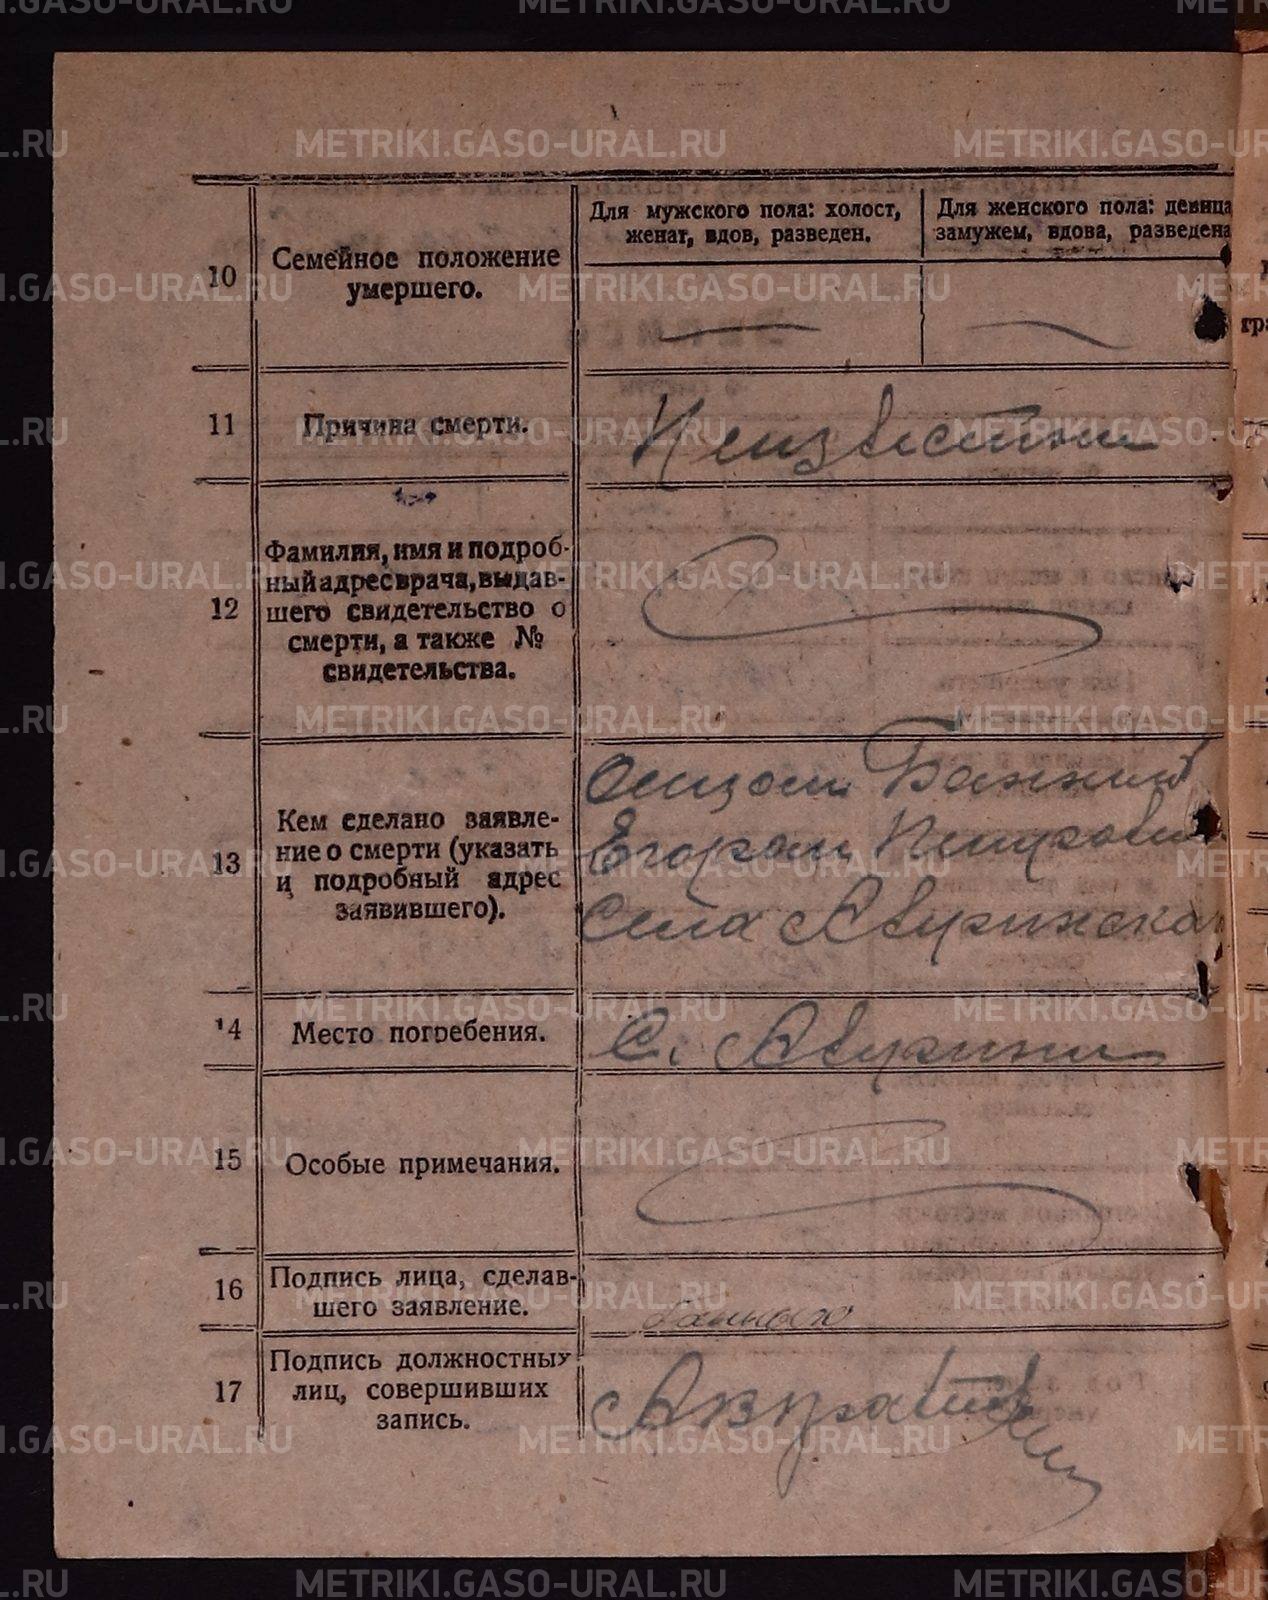 Для мужского пола: холост, женат, вдов, разведен.
Для женского пола: девица замужем, вдова, разведена
10 Семейное положение умершего.
11 Причина смерти. Неизвестны
12 Фамилия, имя и подроб-
ный адрес врача, выдав-
шего свидетельство о
смерти, а также №
свидетельства.
13 Кем сделано заявле-
ние о смерти (указать
и подробный адрес
заявившего).
Отцом
Егором Петрови
Села Авѣринска
14 Место погребения. С.
15 Особые примечания.
16 Подпись лица, сделав-
шего заявление.
17 Подпись должностных
лиц, совершивших
запись.
METRIKI.GASO-URAL.RU